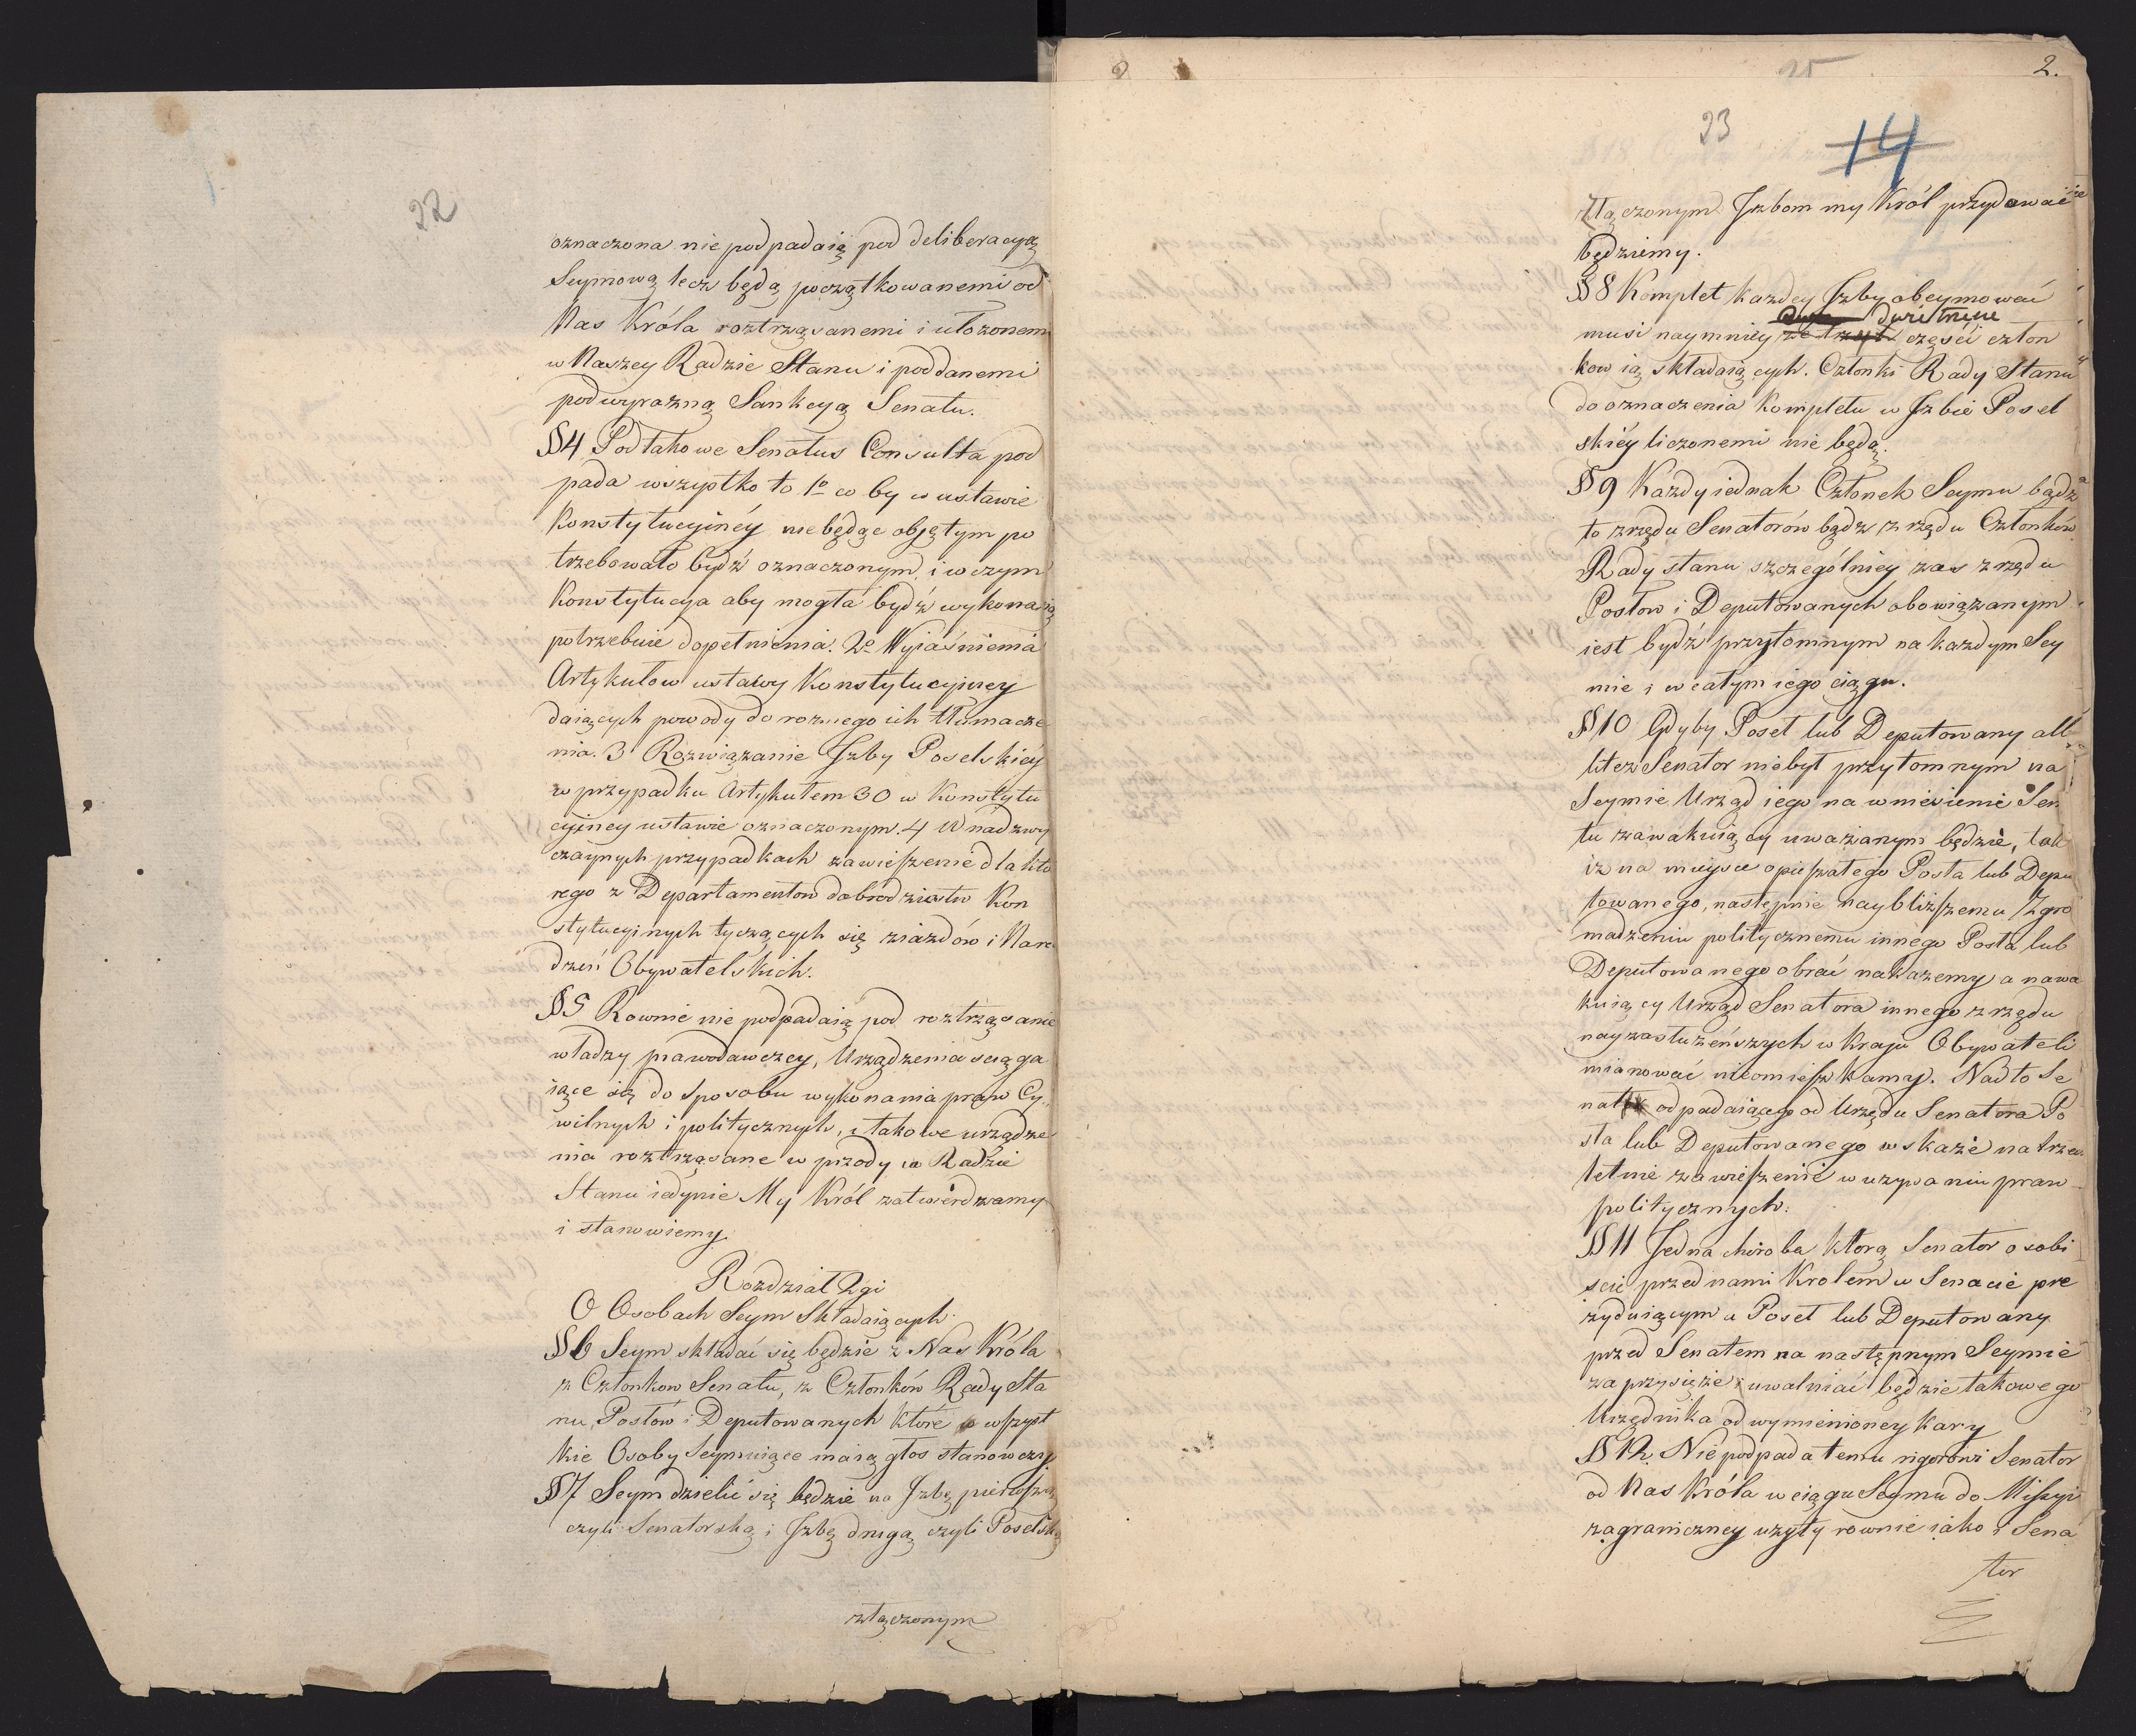 22
oznaczona nie podpadaią pod deliberacyą
Seymową lecz będą początkowanemi od
Nas Króla roztrząsanemi i ułożonemi
w Naszey Radzie Stanu i poddanemi
pod wyraźną Sankcyą Senatu.
§4 Pod takowe Senatus Consulta pod
pada wszystko to 1º co by w ustawie
Konstytucyinéy niebędąc objętym po
trzebowało bydź oznaczonym, i w czym
Konstytucya aby mogła bydź wykonaną
potrzebuie dopełnienia. 2º Wyiaśnienia
Artykułow ustawy Konstytucyiney
daiących powody do roznego ich tłumacze
nia. 3 Rozwiązanie Izby Poselskiéy
w przypadku Artykułem 30 w Konstytu
cyiney ustawie oznaczonym. 4 W nadzwy
czaynych przypadkach zawieszenie dla któ
rego z Departamentow dobrodzieystw Kon
stytucyinych tyczących się ziazdów i Nara
dzeń Obywatelskich.
§5 Rownie nie podpadaią pod roztrząsanie
władzy prawodawczey, Urządzenia sciąga
iące się do sposobu wykonania praw Cy
wilnych i politycznych, takowe urządze
nia roztrząsane w przody w Radzie
Stanu iedynie My Król zatwierdzamy
i stanowiemy
Rozdział 2gi
O Osobach Seym Składaiących.
§6 Seym składać się będzie z Nas Króla
z Członkow Senatu, z Członków Rady Sta
nu, Posłów i Deputowanych które wszyst
kie Osoby Seymuiące maią głos stanowczy
§7 Seym dzielić się będzie na Izbę pierwszą
czyli Senatorską i Izbę drugą czyli Poselską
złączonym
2.
25
23
14
złączonym Izbom my Król przydawać
będziemy.
§8 Komplet każdey Izby obeymować
dwie trzecie
musi naymniey ze trzech części człon
kow ią składaiących. Członki Rady Stanu
do oznaczenia Kompletu w Izbie Posel
skiéy liczonemi nie będą.
§9 Każdy iednak Członek Seymu bądź
to z rzędu Senatorów bądź z rzędu Członków
Rady stanu szczególniey zas z rzędu
Posłow i Deputowanych obowiązanym
iest bydź przytomnym na każdym Sey
mie i w całym iego ciągu.
§10 Gdyby Poseł lub Deputowany alb
liteż Senator niebył przytomnym na
Seymie Urząd iego na wniesienie Sen
tu zawakuiący uważanym będzie, tak
iż na mieysce opieszałego Posła lub Depu
towanego, następnie naybliższemu Zgro
madzeniu politycznemu innego Posła lub
Deputowanego obrać nakażemy a na wa
kuiący Urząd Senatora innego z rzędu
nayzasłużeńszych w Kraju Obywateli
mianować nieomieszkamy. Nadto Se
nat odpadaiącego od Urzędu Senatora Po
sła lub Deputowanego wskaże na trzech
letnie zawieszenie w używaniu praw
politycznych.
§11 Jedna choroba którą Senator osobi
scie przed nami Krolem w Senacie pre
zyduiącym a Poseł lub Deputowany
przed Senatem na następnym Seymie
zaprzysięże uwalniać będzie takowego
Urzędnika od wymienioney kary
§12. Nie podpada temu rigorowi Senator
od Nas Króla w ciągu Seymu do Missyi
zagraniczney użyty rownie iako i Sena
tor